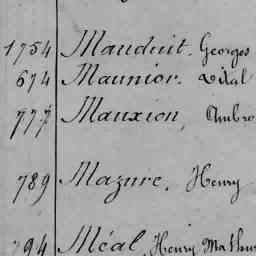 1754 Mauduit. Georges
674 Maunior. Vital
777 Mauxion, Ambro
789 Mazure, Henry
794 Méal, Henry, Mathu